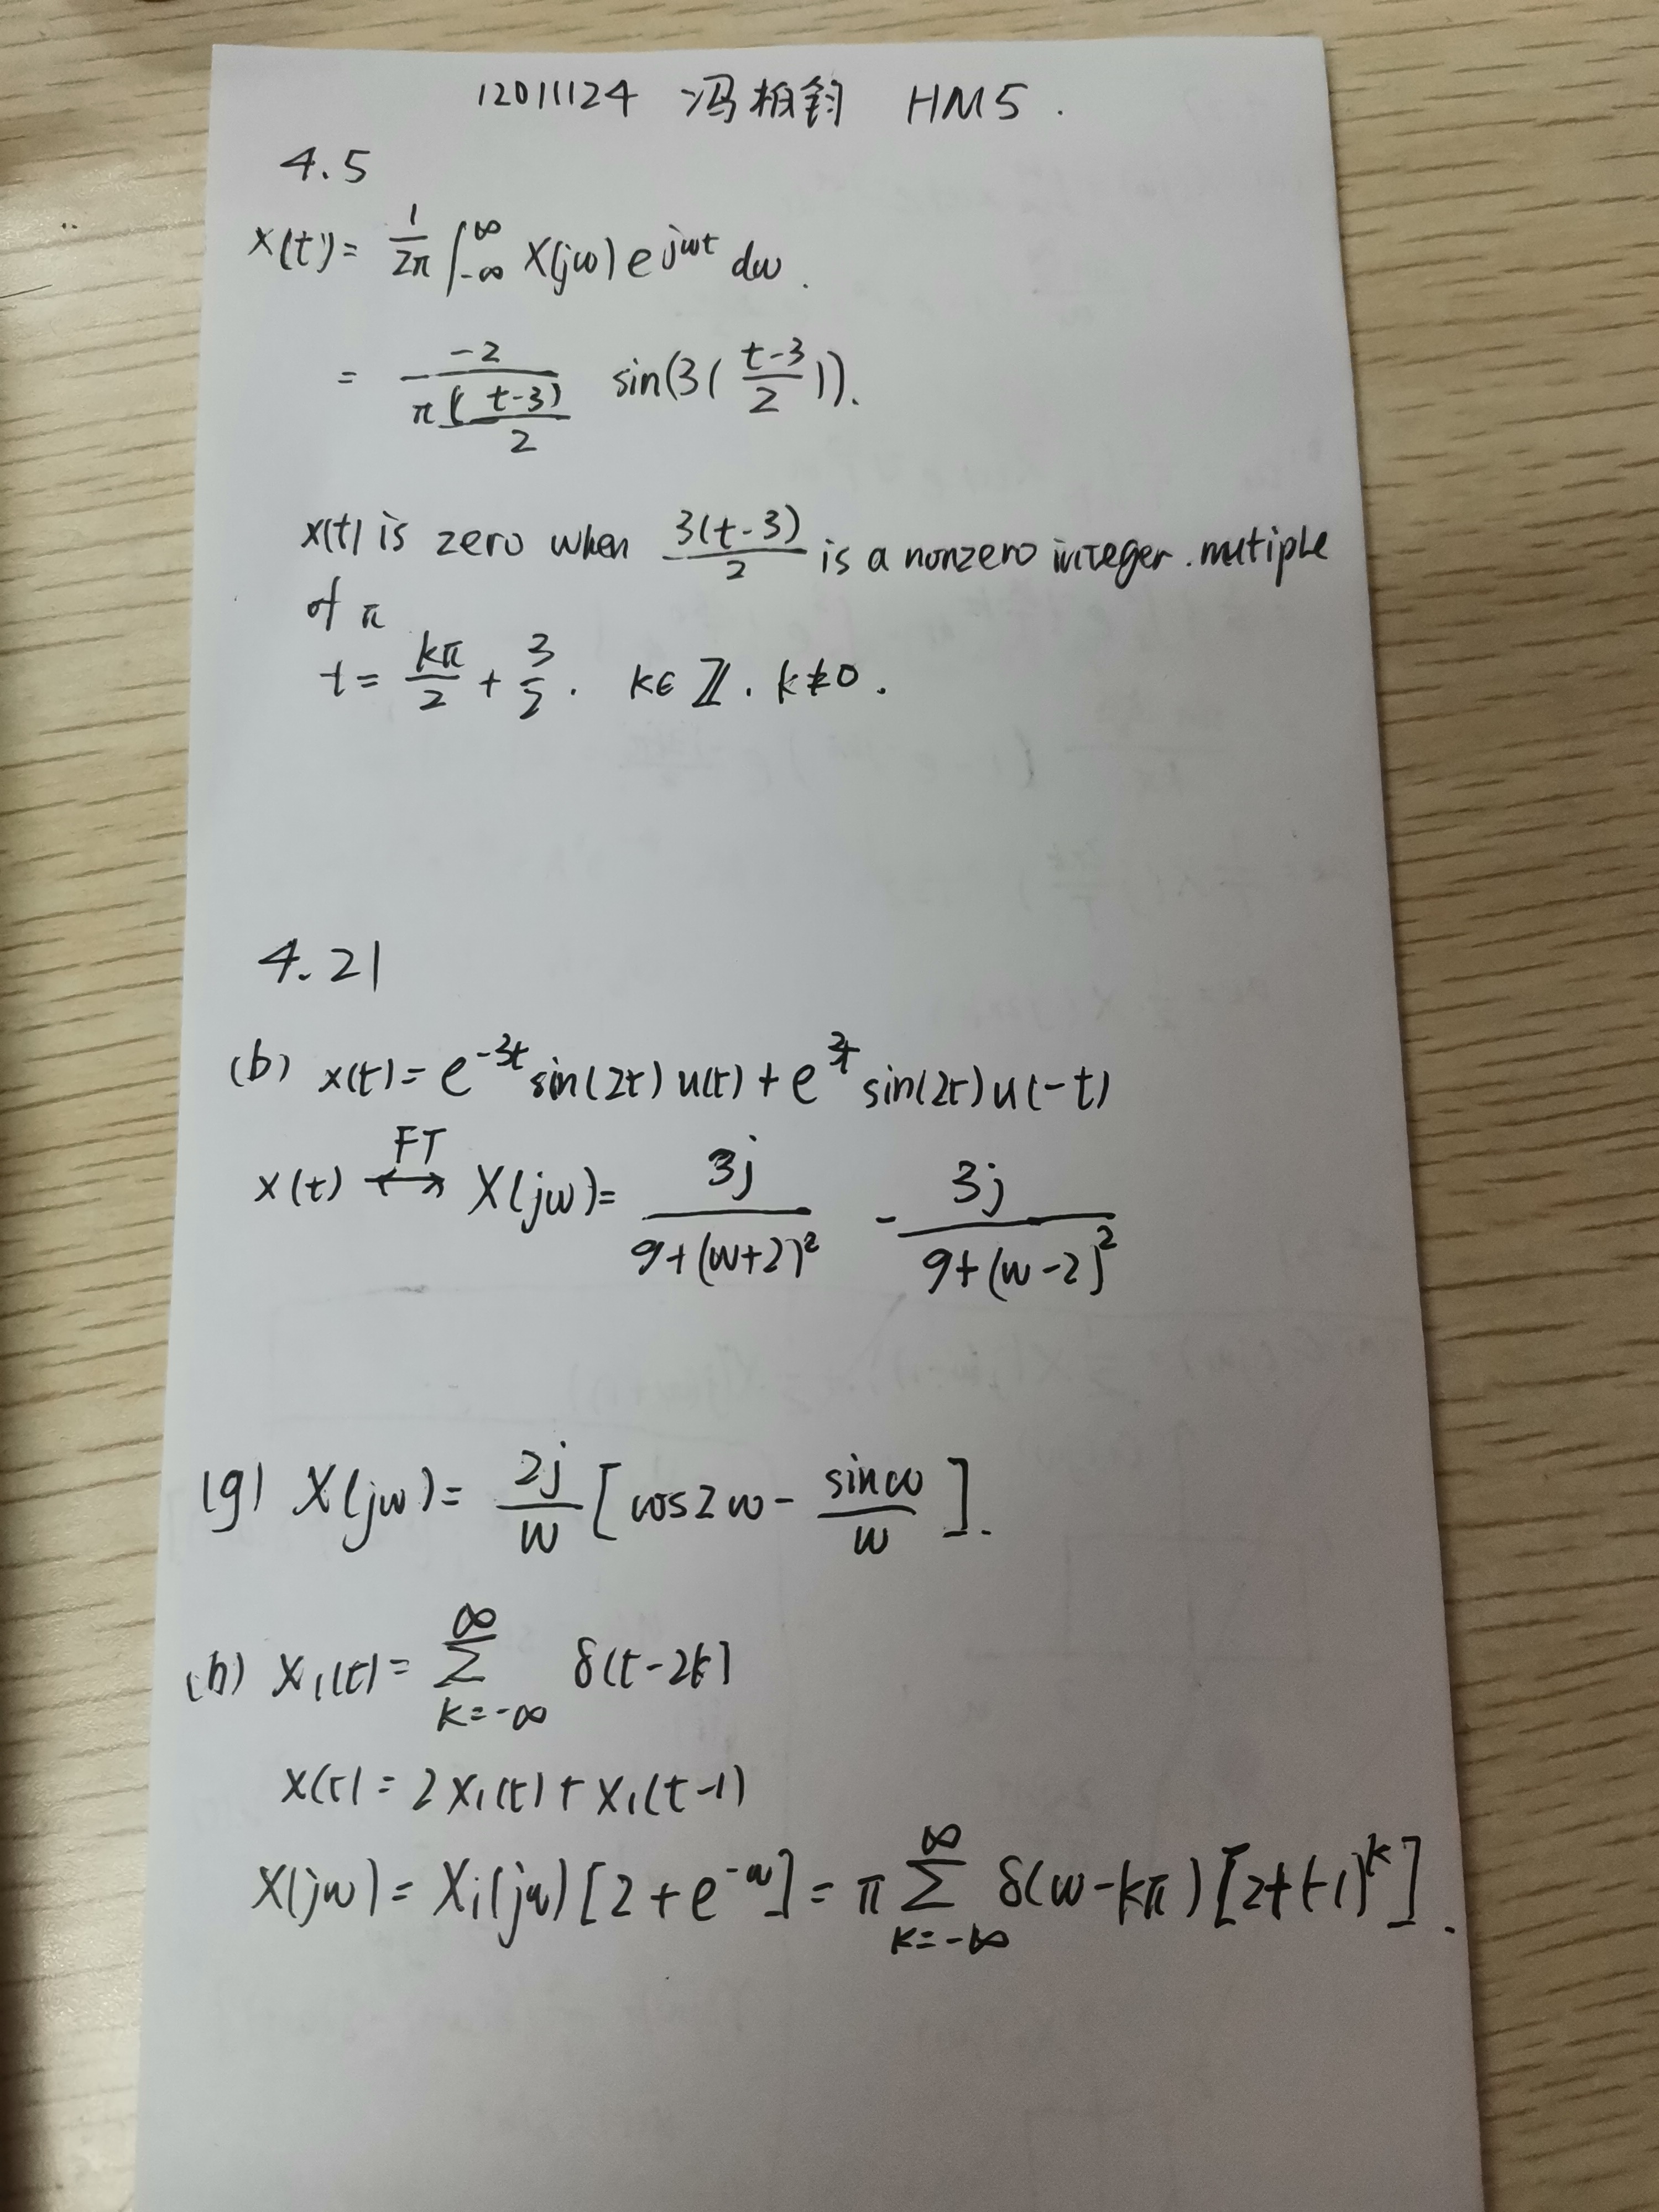 12011124 冯柏钧 HM5.
4.5
x(t) = \frac{1}{2π} ∫_{-∞}^{∞} X(jω) e^{jωt} dω.
= \frac{-2}{π\frac{(t-3)}{2}} sin(3(\frac{t-3}{2})).
x(t) is zero when \frac{3(t-3)}{2} is a nonzero integer.mutiple
of π
t = \frac{kπ}{2} + \frac{3}{2}. k∈Z. k≠0.
4.21
(b) x(t) = e^{-3t} sin(2t) u(t) + e^{3t} sin(2t) u(-t)
x(t) \overset{FT}{↔} X(jω) = \frac{3j}{9+(ω+2)^2} - \frac{3j}{9+(ω-2)^2}
(g) X(jω) = \frac{2j}{ω} [cos2ω - \frac{sinω}{ω}].
(h) x_1(t) = \sum_{k=-∞}^{∞} δ(t-2k)
x(t) = 2x_1(t) + x_1(t-1)
X(jω) = X_1(jω)[2+e^{-ω}] = π \sum_{k=-∞}^{∞} δ(ω-kπ)[2+(-1)^k].